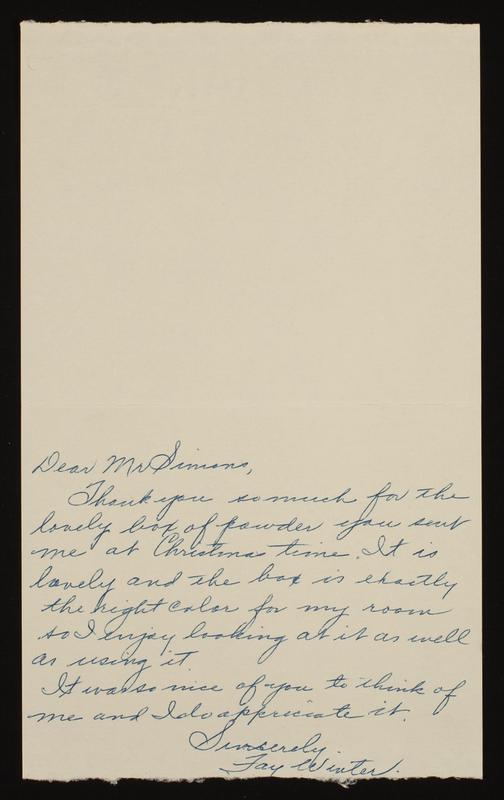 Dear Mr Simons,
Thank you so much for the
lovely box of powder you sent
me at Christmas time. It is
lovely and the box is exactly
the right color for my room
so I enjoy looking at it as well
as using it.
It was so nice of you to think of
me and I do appreciate it.
Sincerely.
Fay Winter.